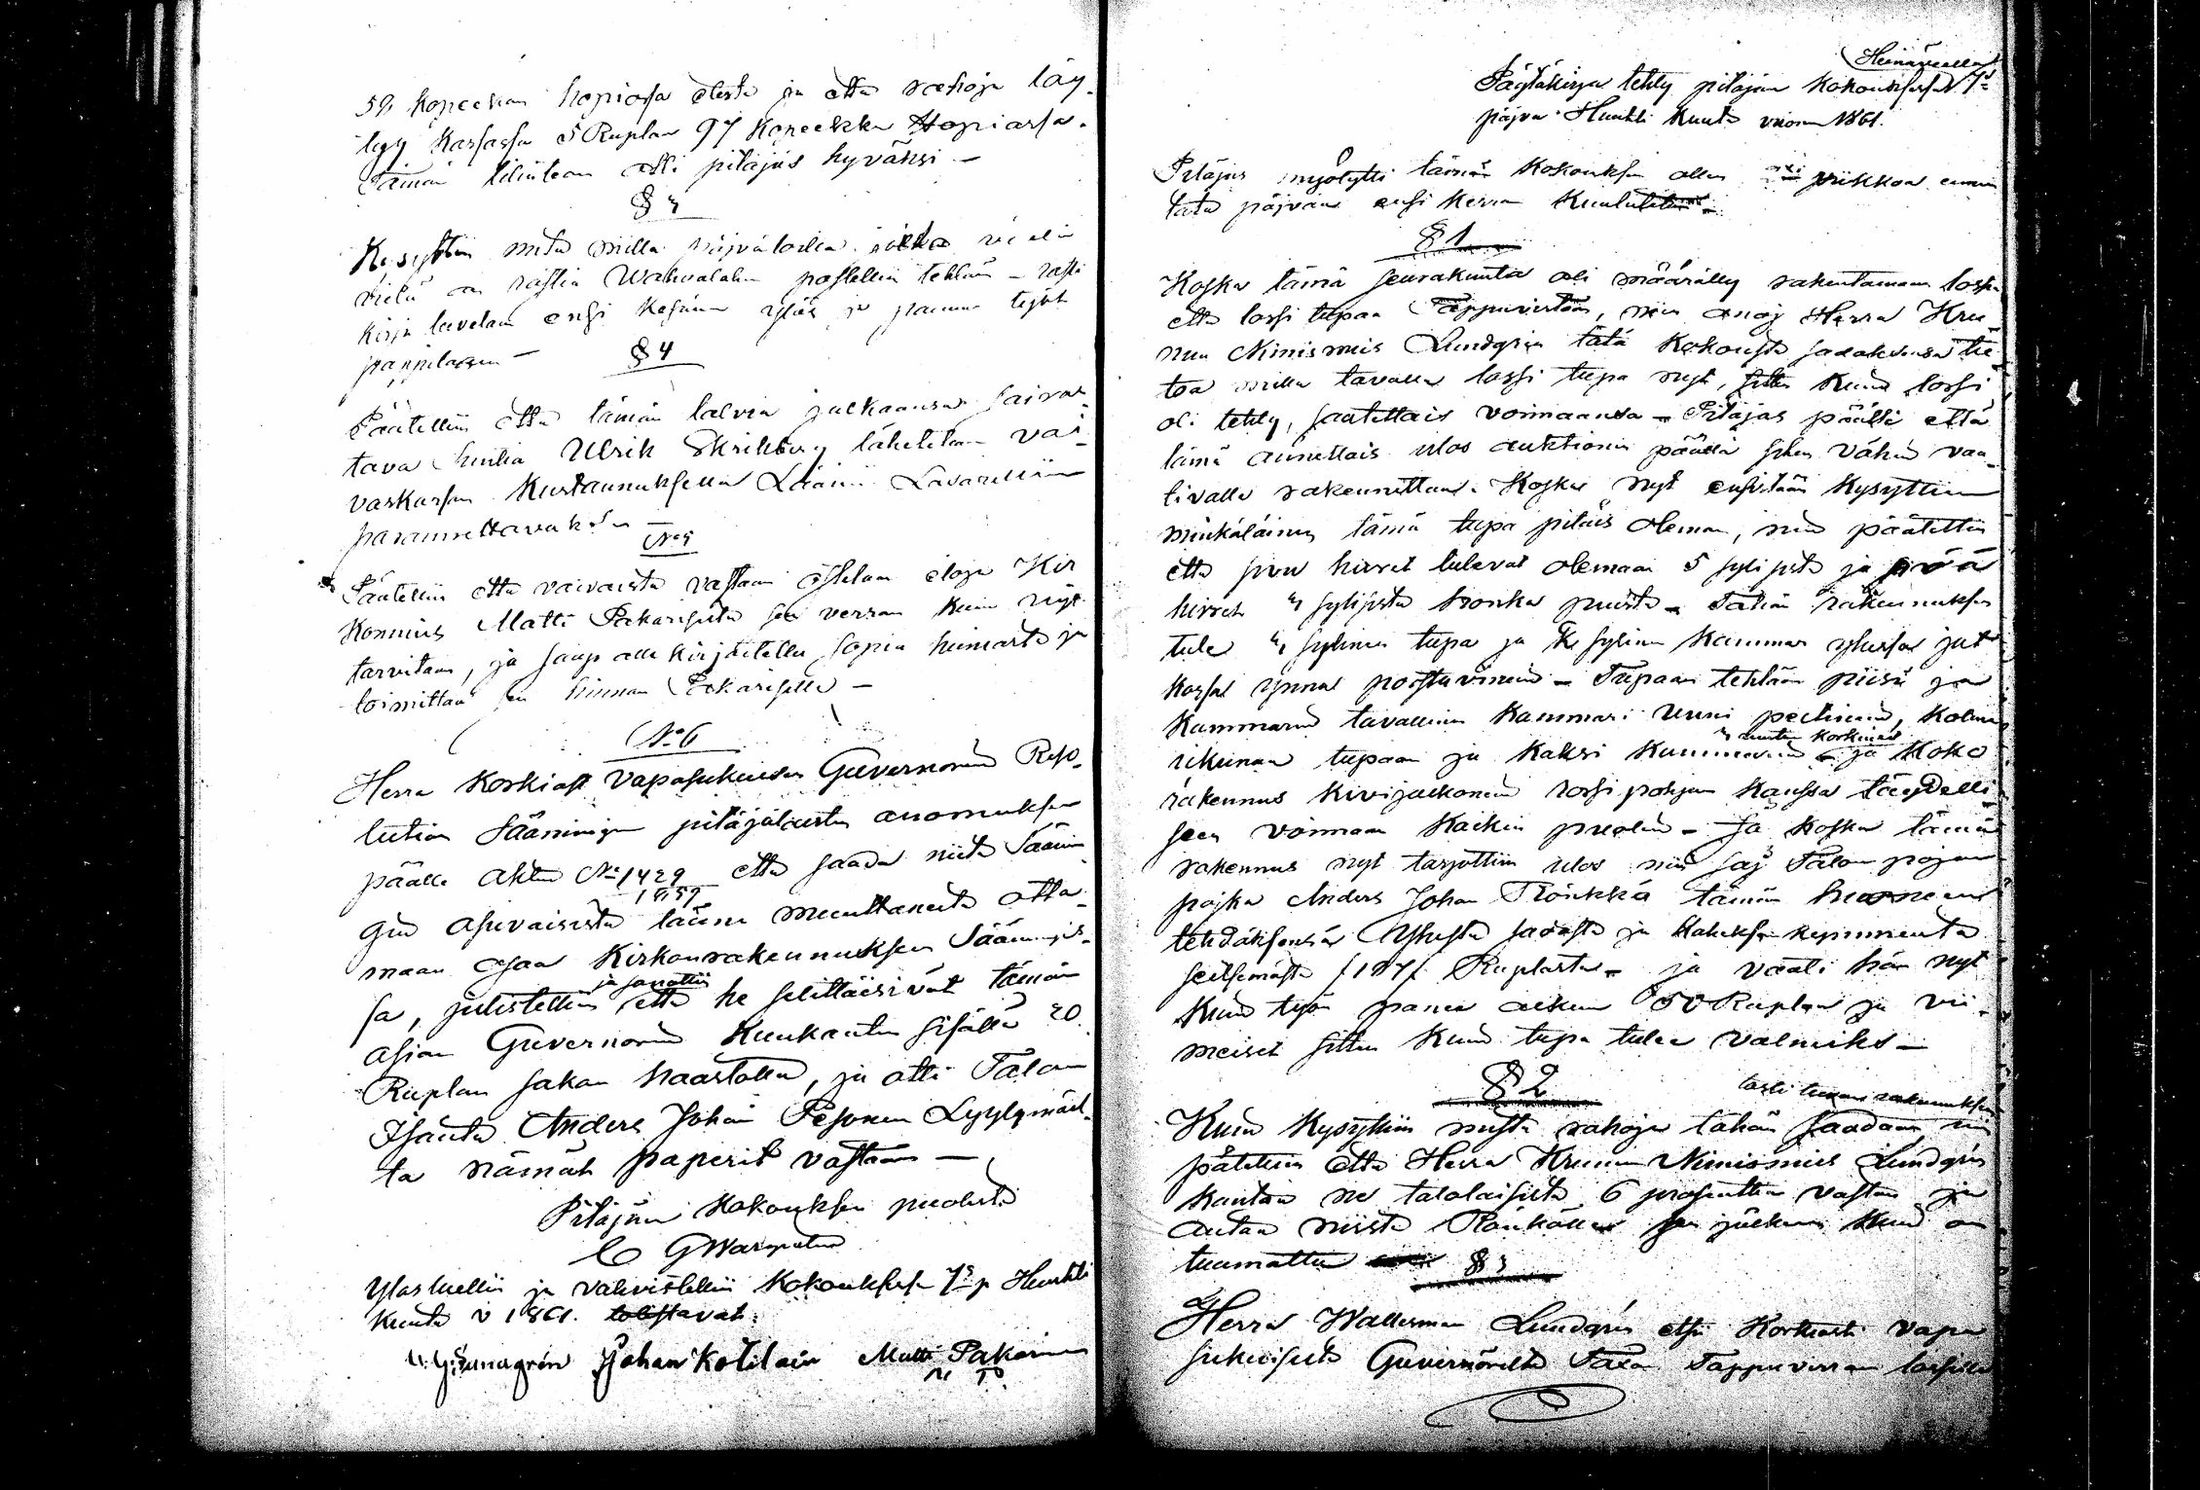 59 kopeekan hopiassa olesta ja että rahoja löy,
tyy kassassa 5 Ruplan 97 kopeekka Hopiassa.
Tämän tilinteon otti pitäjäs hyväksi —
§ 3
Kysyttiin mitä
vielä on rästiä Wahvalahen postelliin tehtään - rästi
kirja luvetan ensi kesänä ylös ja pannan tyät
pappilassa —
§ 4
Päätettiin että tämän talvia julkaansa sairas,
tava huilia Ulrik Skrikberg lähetetään vai
vaskassan kustannuksella Läänin Lasarettiin
parannettavaksi —
No 5
Päätettiin että vaivaista vastaan ostetan eloja Kir
konmies Matti Pakarisesta sen verran kuin nyt
tarvitaan, ja saap alle kirjoitettu sopia hinnasta ja
toimittaa sen hinnan Pakariselle —
No 6
Herra Korkiast vapasukuisen Guvernorin Reso,
lution Sääminign pitäjäläisten anomuksen
päälle Aktin No 1429 1859 että saada niitä Säämin
gin asuvaisista tänne muuttaneita otta-
maan osaa Kirkonrakennukseen Säämingis-
sä, julistettiin ja sanottiin että he selittäisivät tämän
asian Guvernorin Kuukauden sisällä 20
Ruplan sakon haastolla, ja otti Talon
Isäntä Anders Johan Pesonen Lyylymäel-
tä nämät paperit vastaan —
Pitäjän kokouksen puolesta
C G Wargentin
Ylösluettiin ja vahvistettiin kokouksessa 7s p Huuhti
kuuta v 1861. todistavat:
Sundgrén Johan Kotilain Matti Pakarinen
Heinävedellä
Pöytäkirja tehty pitäjän kokouksessa 7s
päjvä Huuhti kuuta vuona 1861.
Pitäjäs myötytti tämän kokouksen ollen viikkoa ennen
tätä päjvää ensi kerran kuulutettu -
§ 1
Koska tämä seurakunta oli määrätty rakentamaan
että lossi tupaa Tappuvirtaan, niin anoj Herra Kru
nun Nimismies Lundgrén tätä kokousta saadaksensa tie
toa millä tavalla lossi tupa nyt, sitte kuin lossi
oli tehty, saatettais voimaansa - Pitäjäs päätti että
tämä annettais ulos auktionin päällä sen vähin vaa-
tivalle rakennettaa. Koska nyt ensistään kysyttiin
minkälainen tämä tupa pitäis oleman, niin päätettiin
että sivu hirret tulevat olemaan 5 sylistä ja pää
hirret 3 sylistä honka puusta - Tähän rakennukseen
tule 3 sylinen tupa ja sylinen kammar yhessä jat
kossa ynnä porstuvineen - Tupaan tehtään piisi ja
Kammarin tavallinen kammari uuni peltineen, kolme
ikkunaa tupaan ja kaksi kammariin 3 ruutun korkuiset - ja koko
rakennus kivijalkoneen rossi pohjan kanssa täydelli
seen voimaan kaikin puolin - Ja koska tämä
rakennus nyt tarjottiin ulos niin saj Talon pojan
pojka Anders Johan Rönkkö tämän huoneen
tehdäksensä Yhestä sadasta ja kaheksankymmentä
seitsemästä [187] Ruplasta - ja vaati hän nyt
kuin työn panee alkun 50 Ruplaa ja vii-
meiset sitten kuin tupa tulee valmiiks —
§ 2
Kuin kysyttiin mistä rahoja tähän lossi tuvan rakennukseen saadaan, niin
pätettiin että Herra Krunun Nimismies Lundgrén
kantaa ne talolaisista 6 prosenttia vastan ja
antaa niistä Rönkölle sen jälkeen kuin on
tuumattu
§ 3
Herra Wallesman Lundgrén etsii Korkiasti vapa
sukuiselta Guvernörilta Taxan Tappuvirran lossille